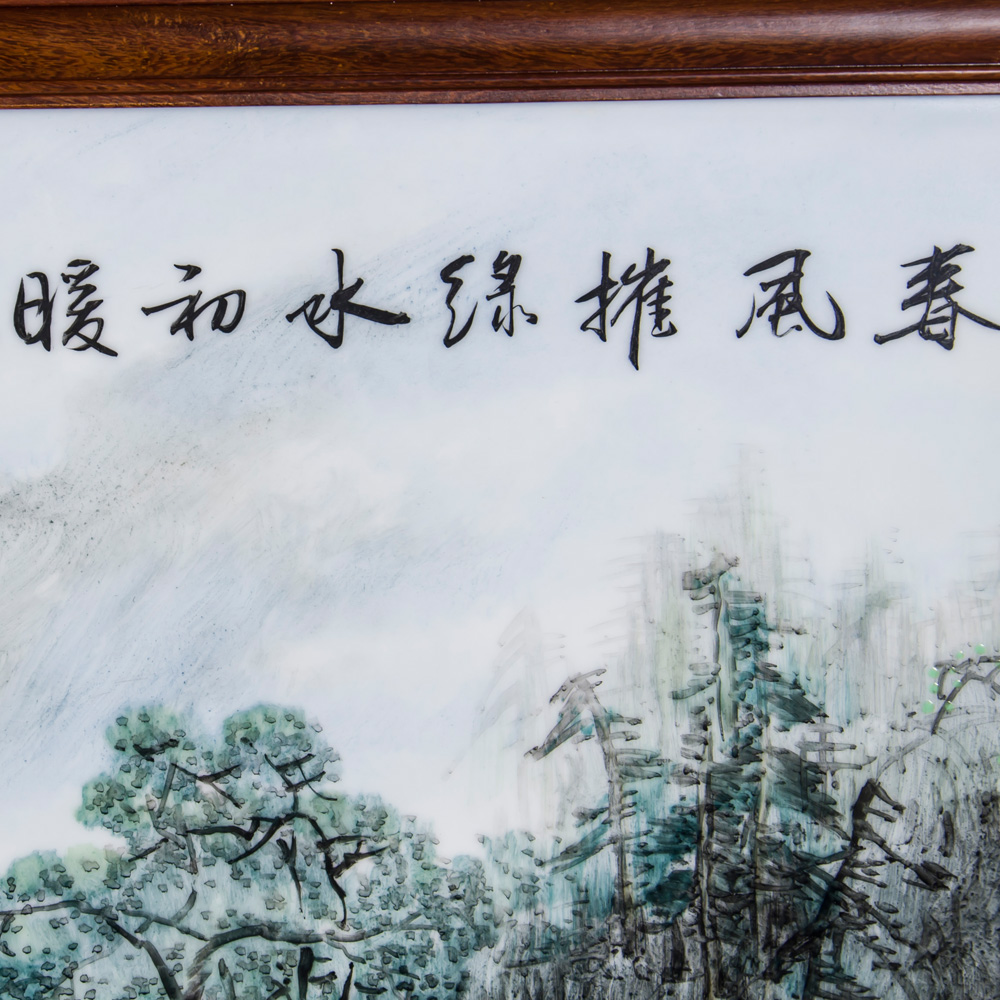 春風摧綠水初暖